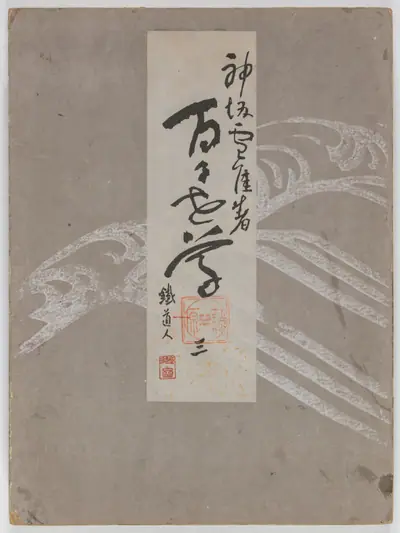 神坂雪佳著
百々世草
三
鐵道人